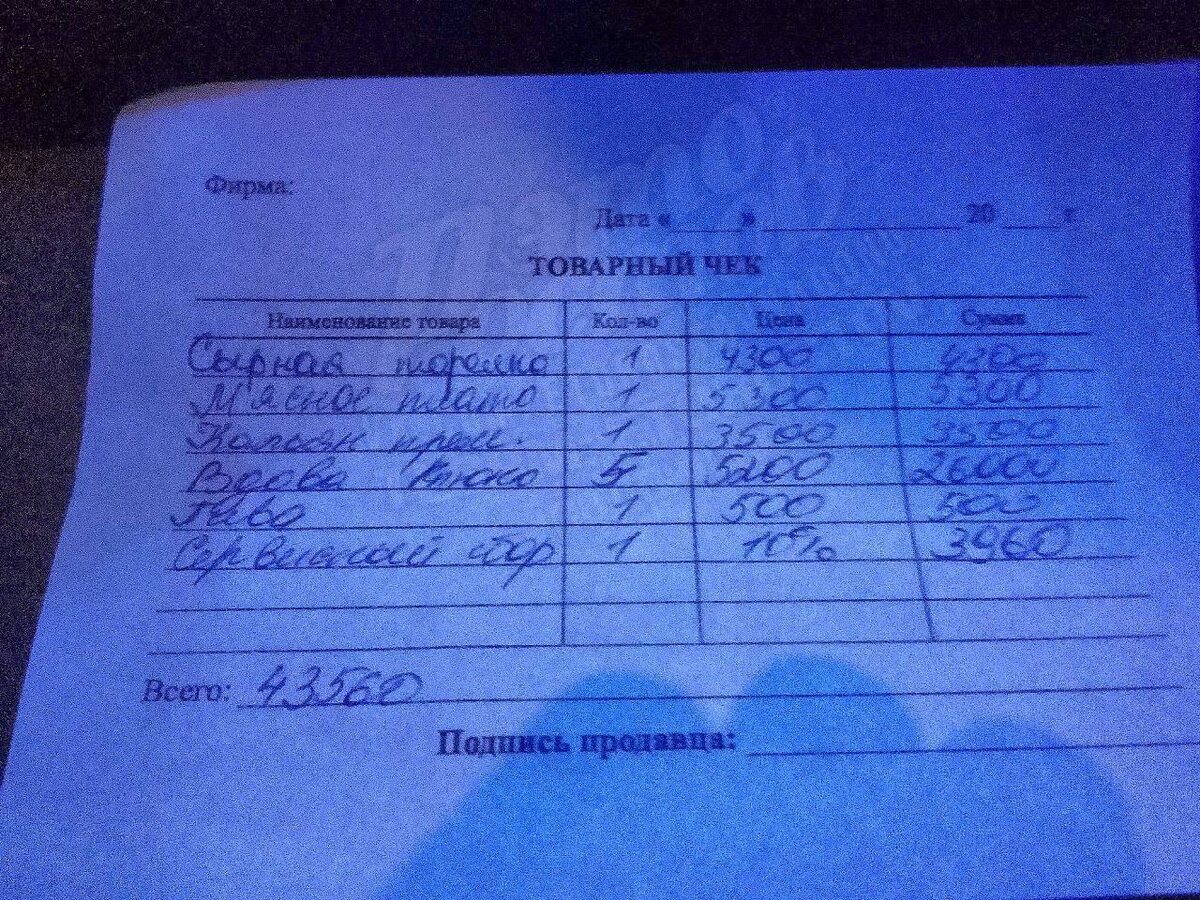 Фирма:
Дата « » 20 г
ТОВАРНЫЙ ЧЕК
Наименование товара Кол-во Цена Сумма
Сырная тарелка 1 4300 4300
Мясное плато 1 5300 5300
Кальян прем. 1 3500 3500
Вдова Клико 5 5200 26000
1 500 500
Сервисный сбор 1 10% 3960
Всего: 43560
Подпись продавца: